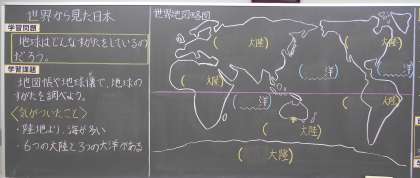 世界から見た日本
学習問題
地球はどんなすがたをしているの
だろう。
学習課題
地図帳や地球儀で、地球の
すがたを調べよう。
〈気がついたこと〉
・陸地より、海が多い
・6つの大陸と3つの大洋がある
世界地図略図
(　大陸)
(　大陸)
(　洋)
(　洋)
(　大陸)
(　洋)
(　大陸)
(　大陸)
(　大陸)